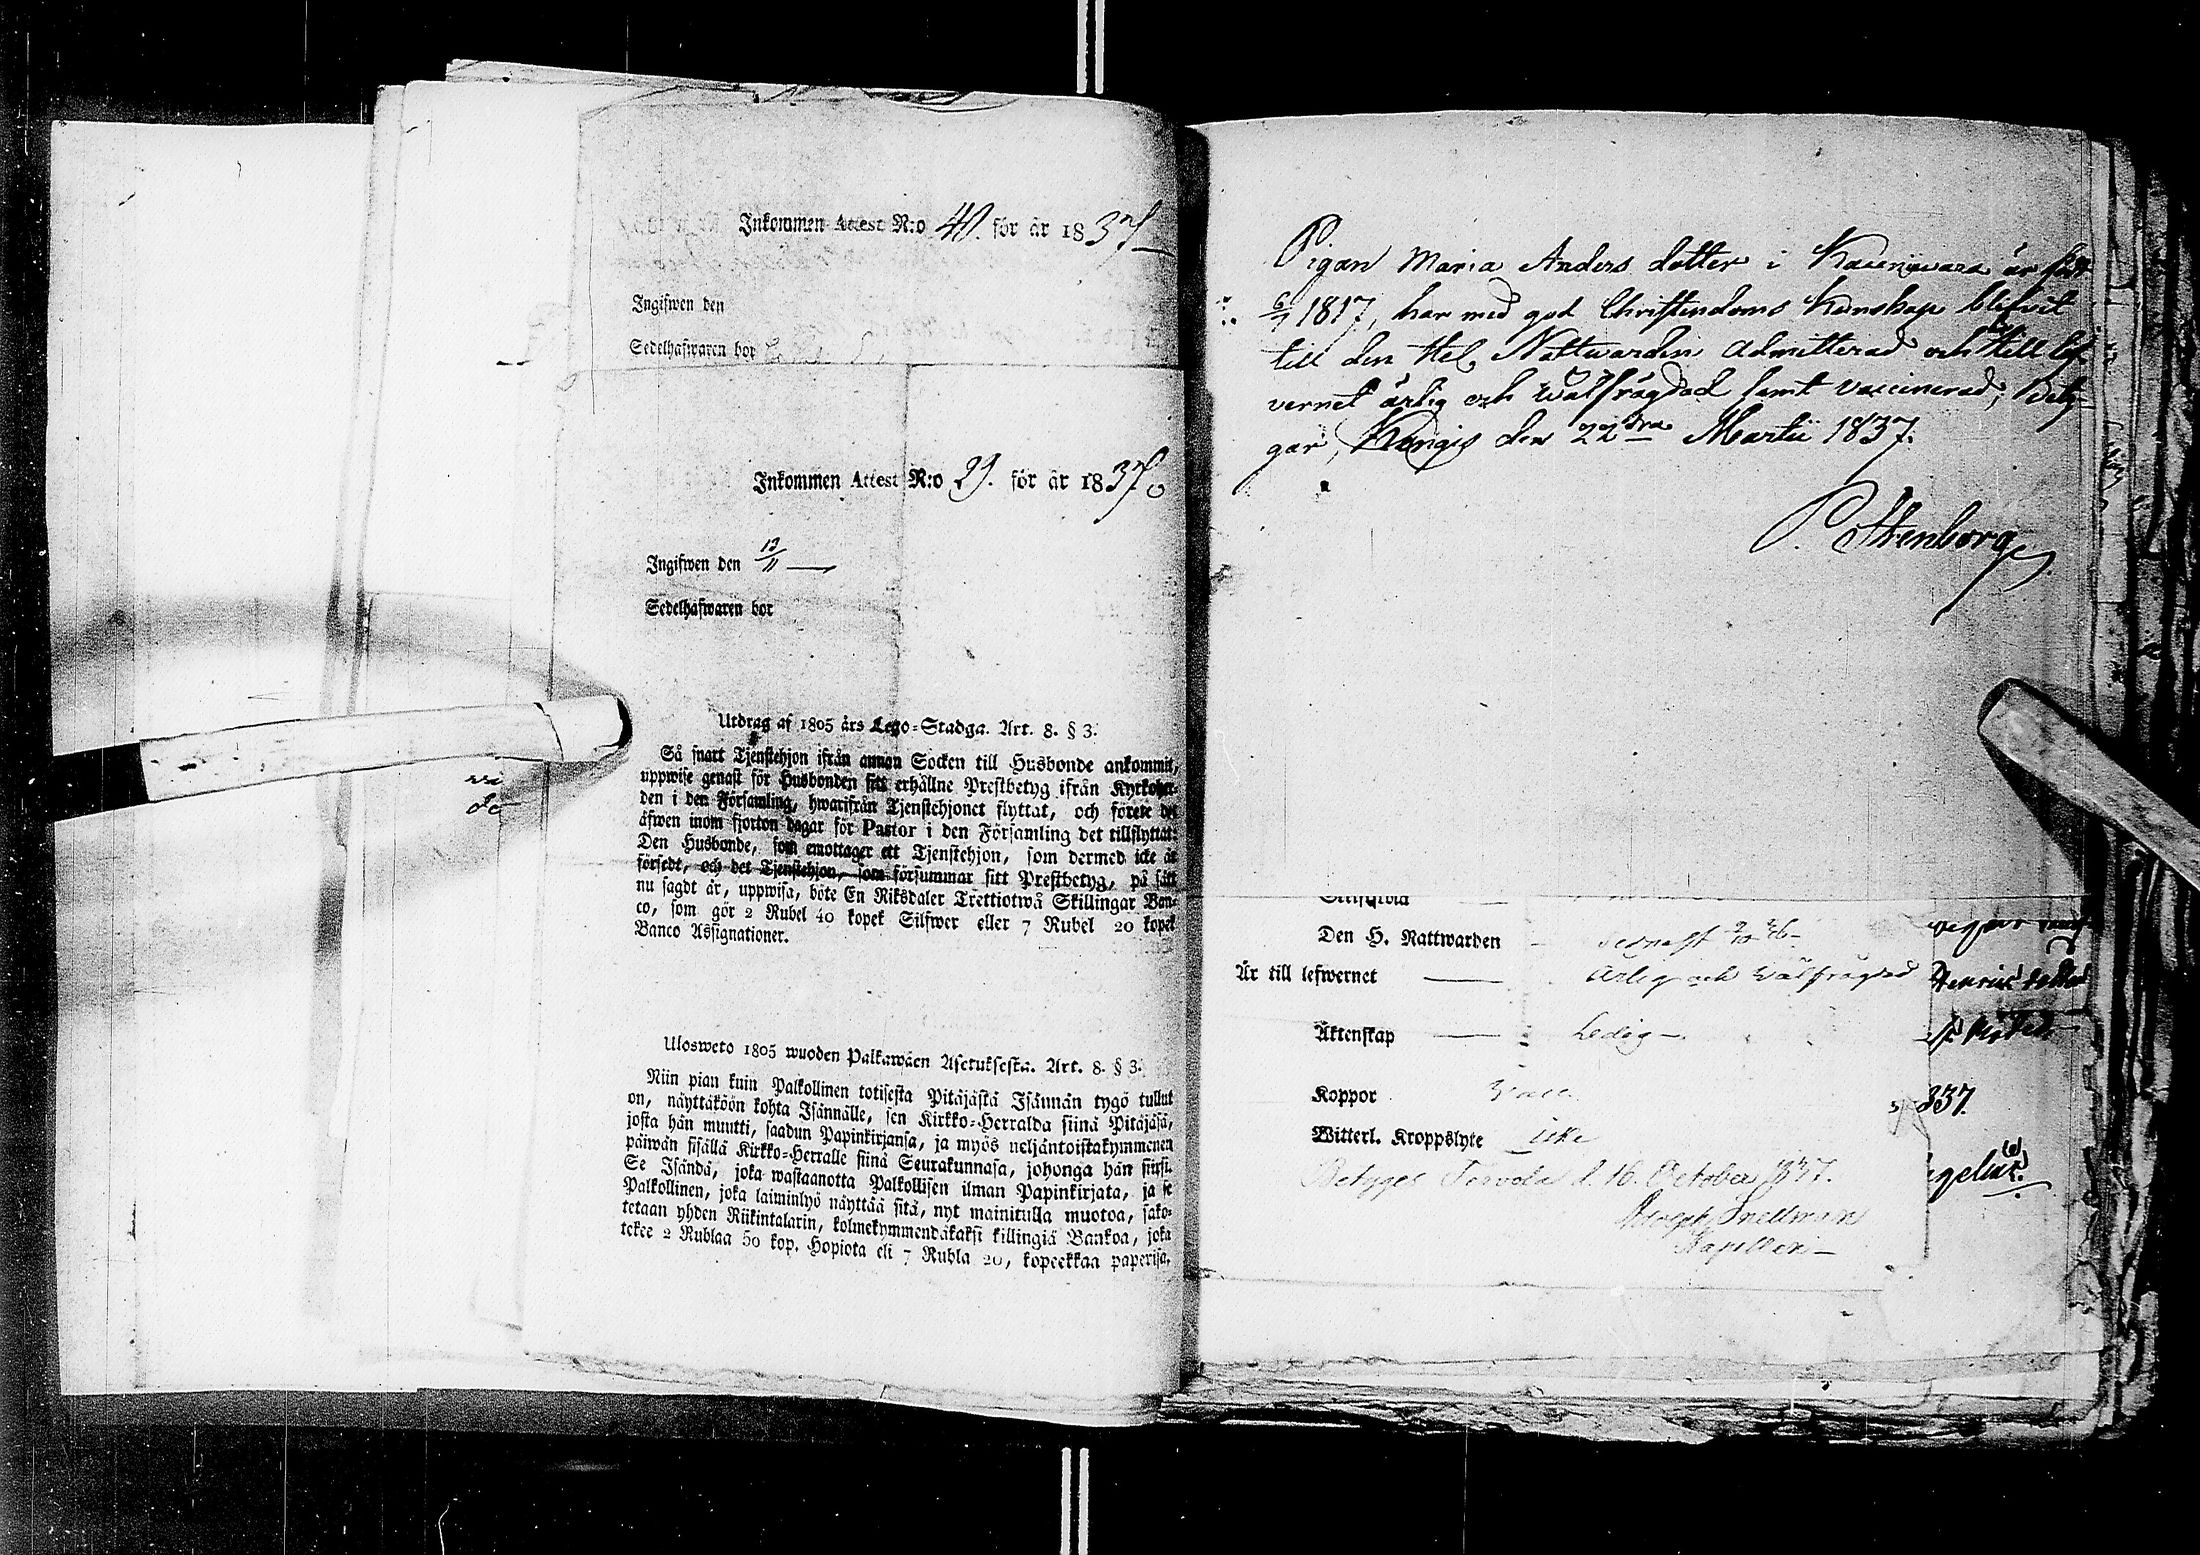 Inkommen Attest N:o 40. för år 1837
Ingifwen den
Sedelhafwaren bor
Inkommen Attest N:o 29. för år 1837
Ingifwen den 13/11
Sedelhafwaren bor
Utdrag af 1805 års Lego-Stadga. Art. 8. § 3.
Så snart Tjenstehjon ifrån annan Socken till Husbonde ankommit,
uppwise genast för Husbonden sitt erhållne Prestbetyg ifrån Kyrkoher-
den i den Församling, hwarifrån Tjenstehjonet flyttat, och förete det
äfwen inom fjorton dagar för Pastor i den Församling det tillflyttat:
Den Husbonde, som emottager ett Tjenstehjon, som dermed icke är
försedt, och det Tjenstehjon, som försummar sitt Prestbetyg, på sätt
nu sagdt är, uppwisa, böte En Riksdaler Trettiotwå Skillingar Ban-
co, som gör 2 Rubel 40 kopek Silfwer eller 7 Rubel 20 kopek
Banco Assignationer.
Ulosweto 1805 wuoden Palkawäen Asetuksesta. Art. 8. § 3.
Niin pian kuin Palkollinen totisesta Pitäjästä Isännän tygö tullut
on, näyttäköön kohta Isännälle, sen Kirkko-Herralda siinä Pitäjäsä,
josta hän muutti, saadun Papinkirjansa, ja myös neljäntoistakymmenen
päiwän sisällä Kirkko-Herralle siinä Seurakunnasa, johonga hän siirsi.
Se Isändä, joka wastaanotta Palkollisen ilman Papinkirjata, ja se
Palkollinen, joka laiminlyö näyttää sitä, nyt mainitulla muotoa, sako-
tetaan yhden Riikintalarin, kolmekymmendäkaksi killingiä Bankoa, joka
tekee 2 Rublaa 50 kop. Hopiota eli 7 Rubla 20, kopeekkaa paperisa.
Pigan Maria Anders dotter i är född
6/7 1817, har med god Christendoms Kunskap blifvit
till den Hel. Nattwarden admitterad och till lef-
vernet ärlig och wälfrägdad samt vaccinerad; Bety-
gar, Kengis den 22dra Martii 1837.
P. Stenborg
Den H. Nattwarden sednast
Är till lefwernet Ärlig och wälfrägdad
Henrics dotter
Äktenskap Ledig
Koppor Vacc.
837.
Witterl. Kroppslyte icke
Betyges Tervola d. 16. October 1837.
Adolph Snellman
Kapellan